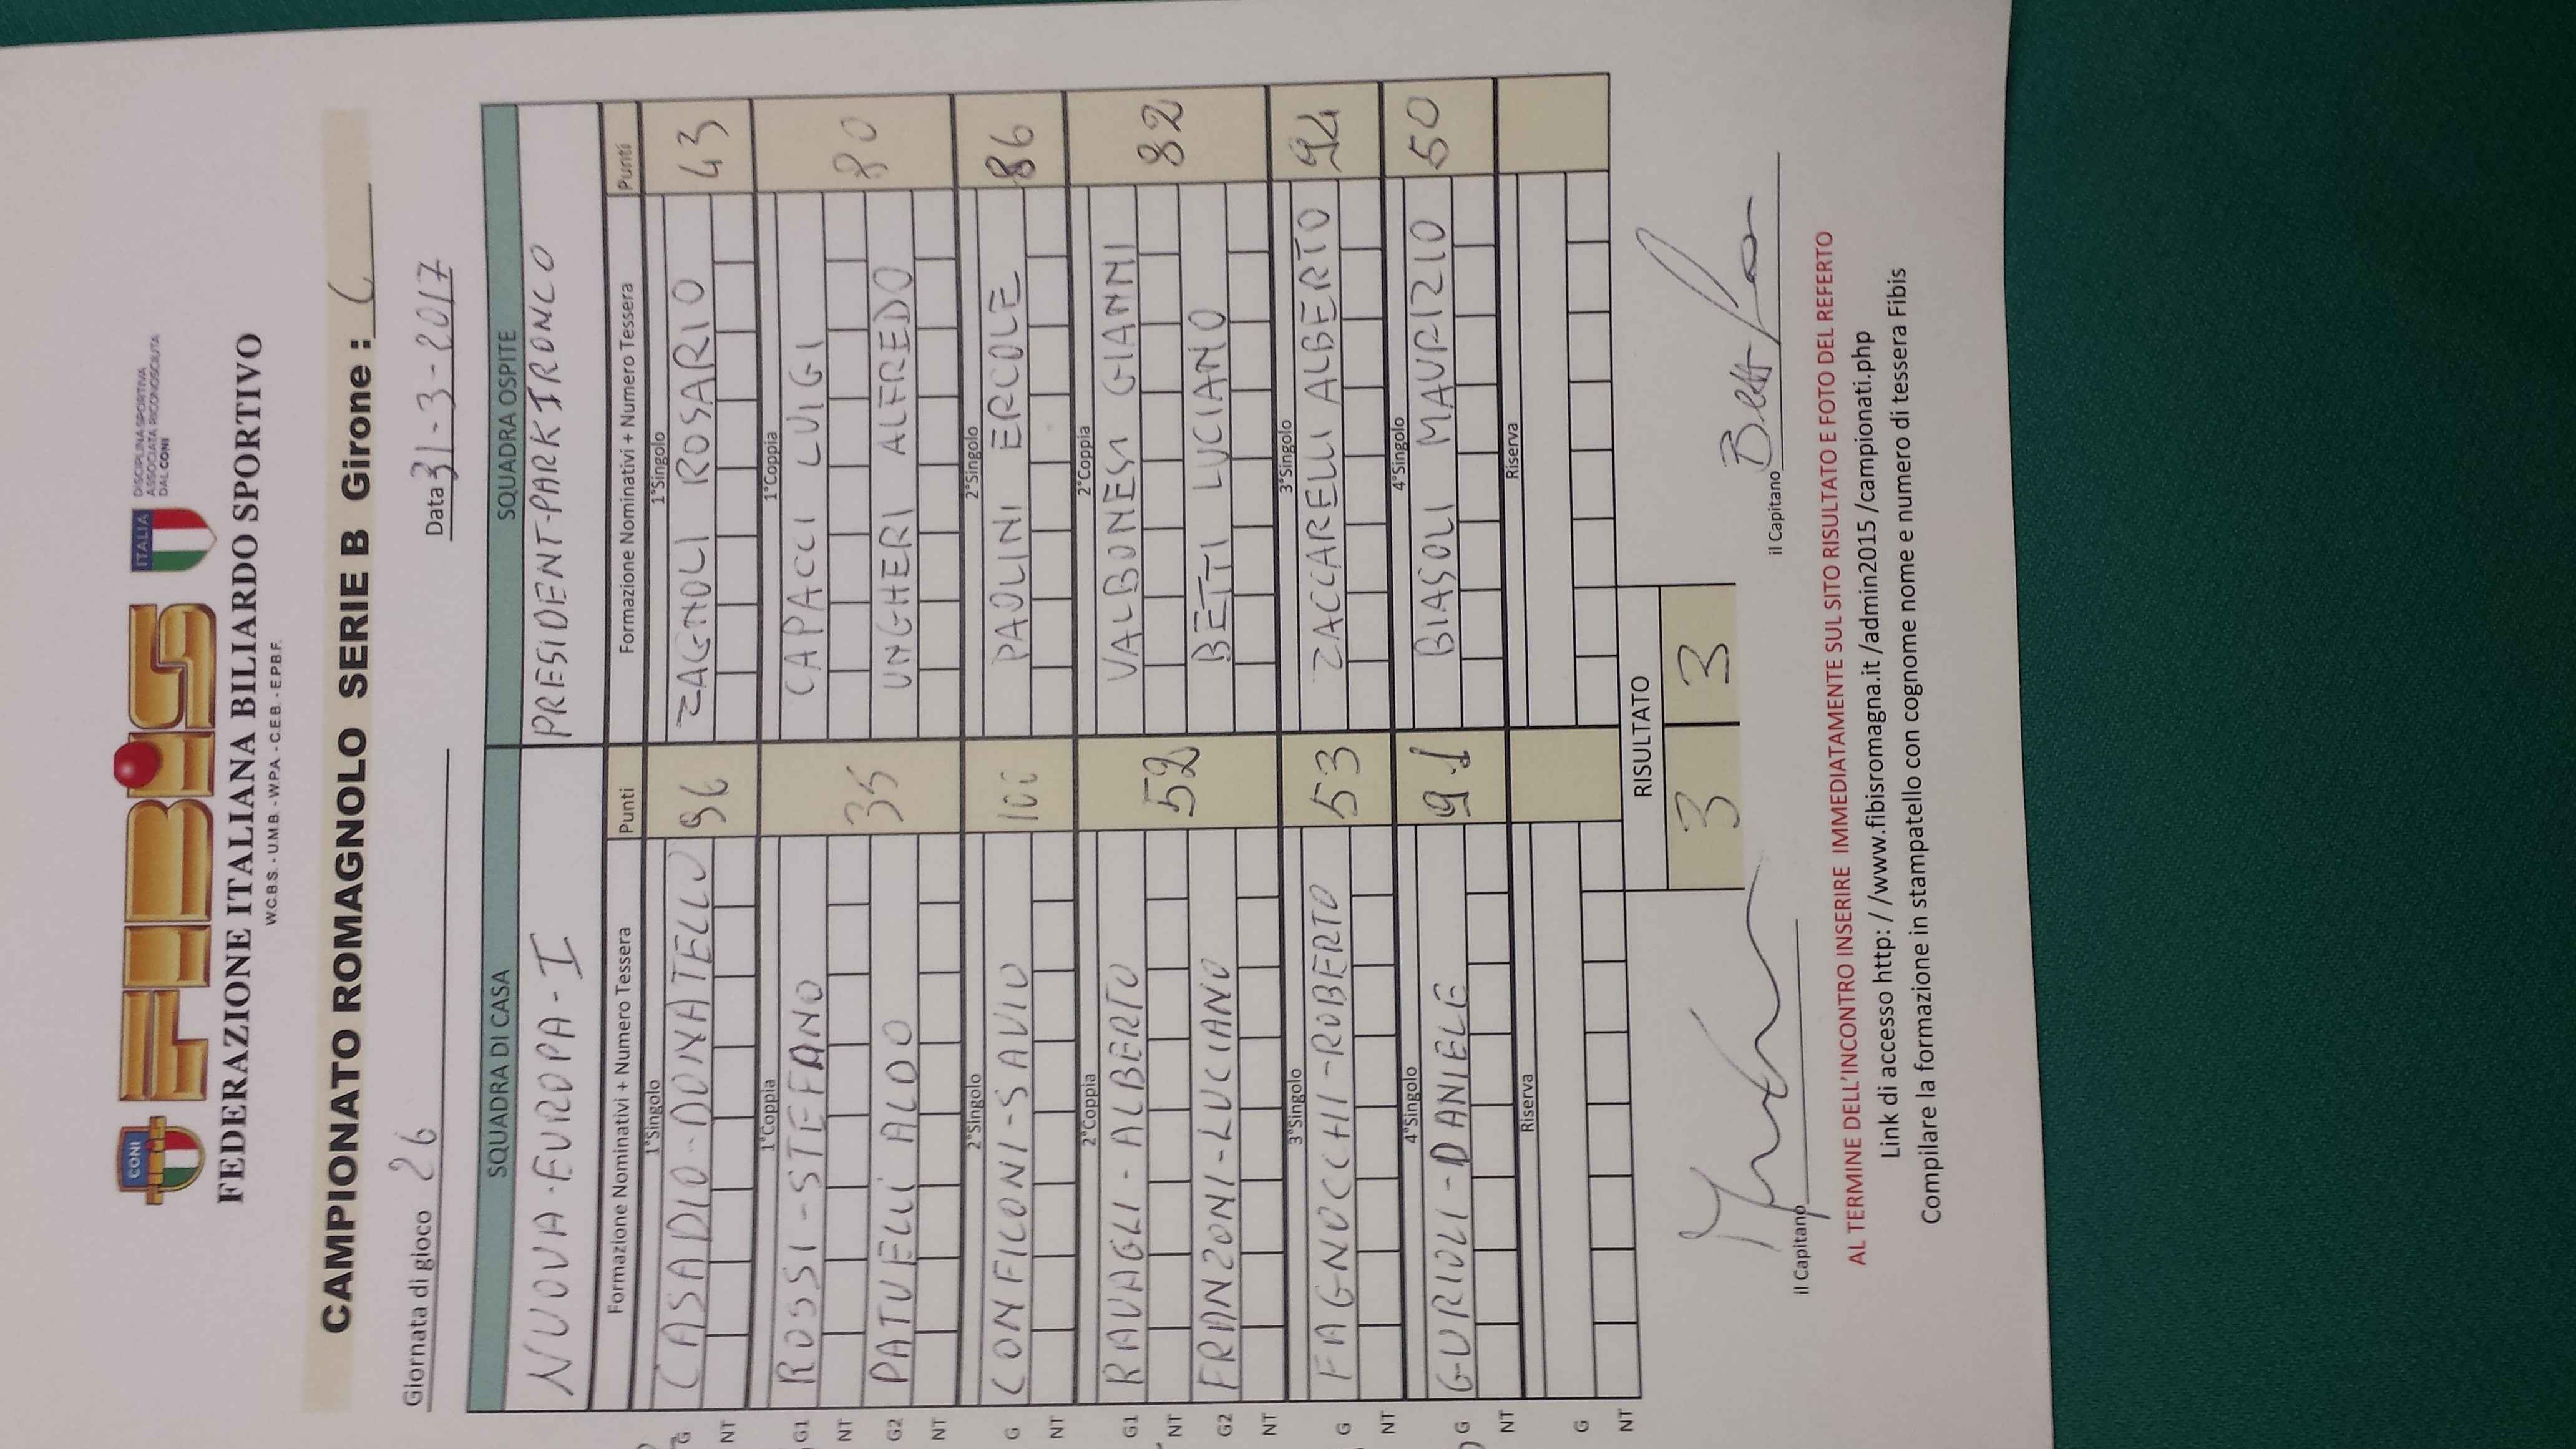 CONI FIBIS ITALIA DISCIPLINA SPORTIVA
ASSOCIATA RICONOSCIUTA
DAL CONI
FEDERAZIONE ITALIANA BILIARDO SPORTIVO
W.C.B.S. - U.M.B. - W.P.A. - C.E.B. - E.P.B.F.
CAMPIONATO ROMAGNOLO SERIE B Girone : C
Giornata di gioco 26 Data 31-3-2017
SQUADRA DI CASA SQUADRA OSPITE
NUOVA-EUROPA-I PRESIDENT-PARK IRONCO
Formazione Nominativi + Numero Tessera Punti Formazione Nominativi + Numero Tessera Punti
1°Singolo 1°Singolo
G CASADIO-DONATELLO 96 ZAGNOLI ROSARIO 43
NT
1°Coppia 1°Coppia
G1 ROSSI-STEFANO 35 CAPACCI LUIGI 80
NT
G2 PATUELLI ALDO UNGHERI ALFREDO
NT
2°Singolo 2°Singolo
G CONFICONI-SAVIO 101 PAOLINI ERCOLE 86
NT
2°Coppia 2°Coppia
G1 RAVAGLI-ALBERTO 52 VALBONESI GIANNI 82
NT
G2 FRANZONI-LUCIANO BETTI LUCIANO
NT
3°Singolo 3°Singolo
G FAGNOCCHI-ROBERTO 53 ZACCARELLI ALBERTO 94
NT
4°Singolo 4°Singolo
G GURIOLI-DANIELE 91 BIASOLI MAURIZIO 50
NT
Riserva Riserva
G
NT
RISULTATO
3 3
il Capitano il Capitano
AL TERMINE DELL'INCONTRO INSERIRE IMMEDIATAMENTE SUL SITO RISULTATO E FOTO DEL REFERTO
Link di accesso http: / /www.fibisromagna.it /admin2015 /campionati.php
Compilare la formazione in stampatello con cognome nome e numero di tessera Fibis